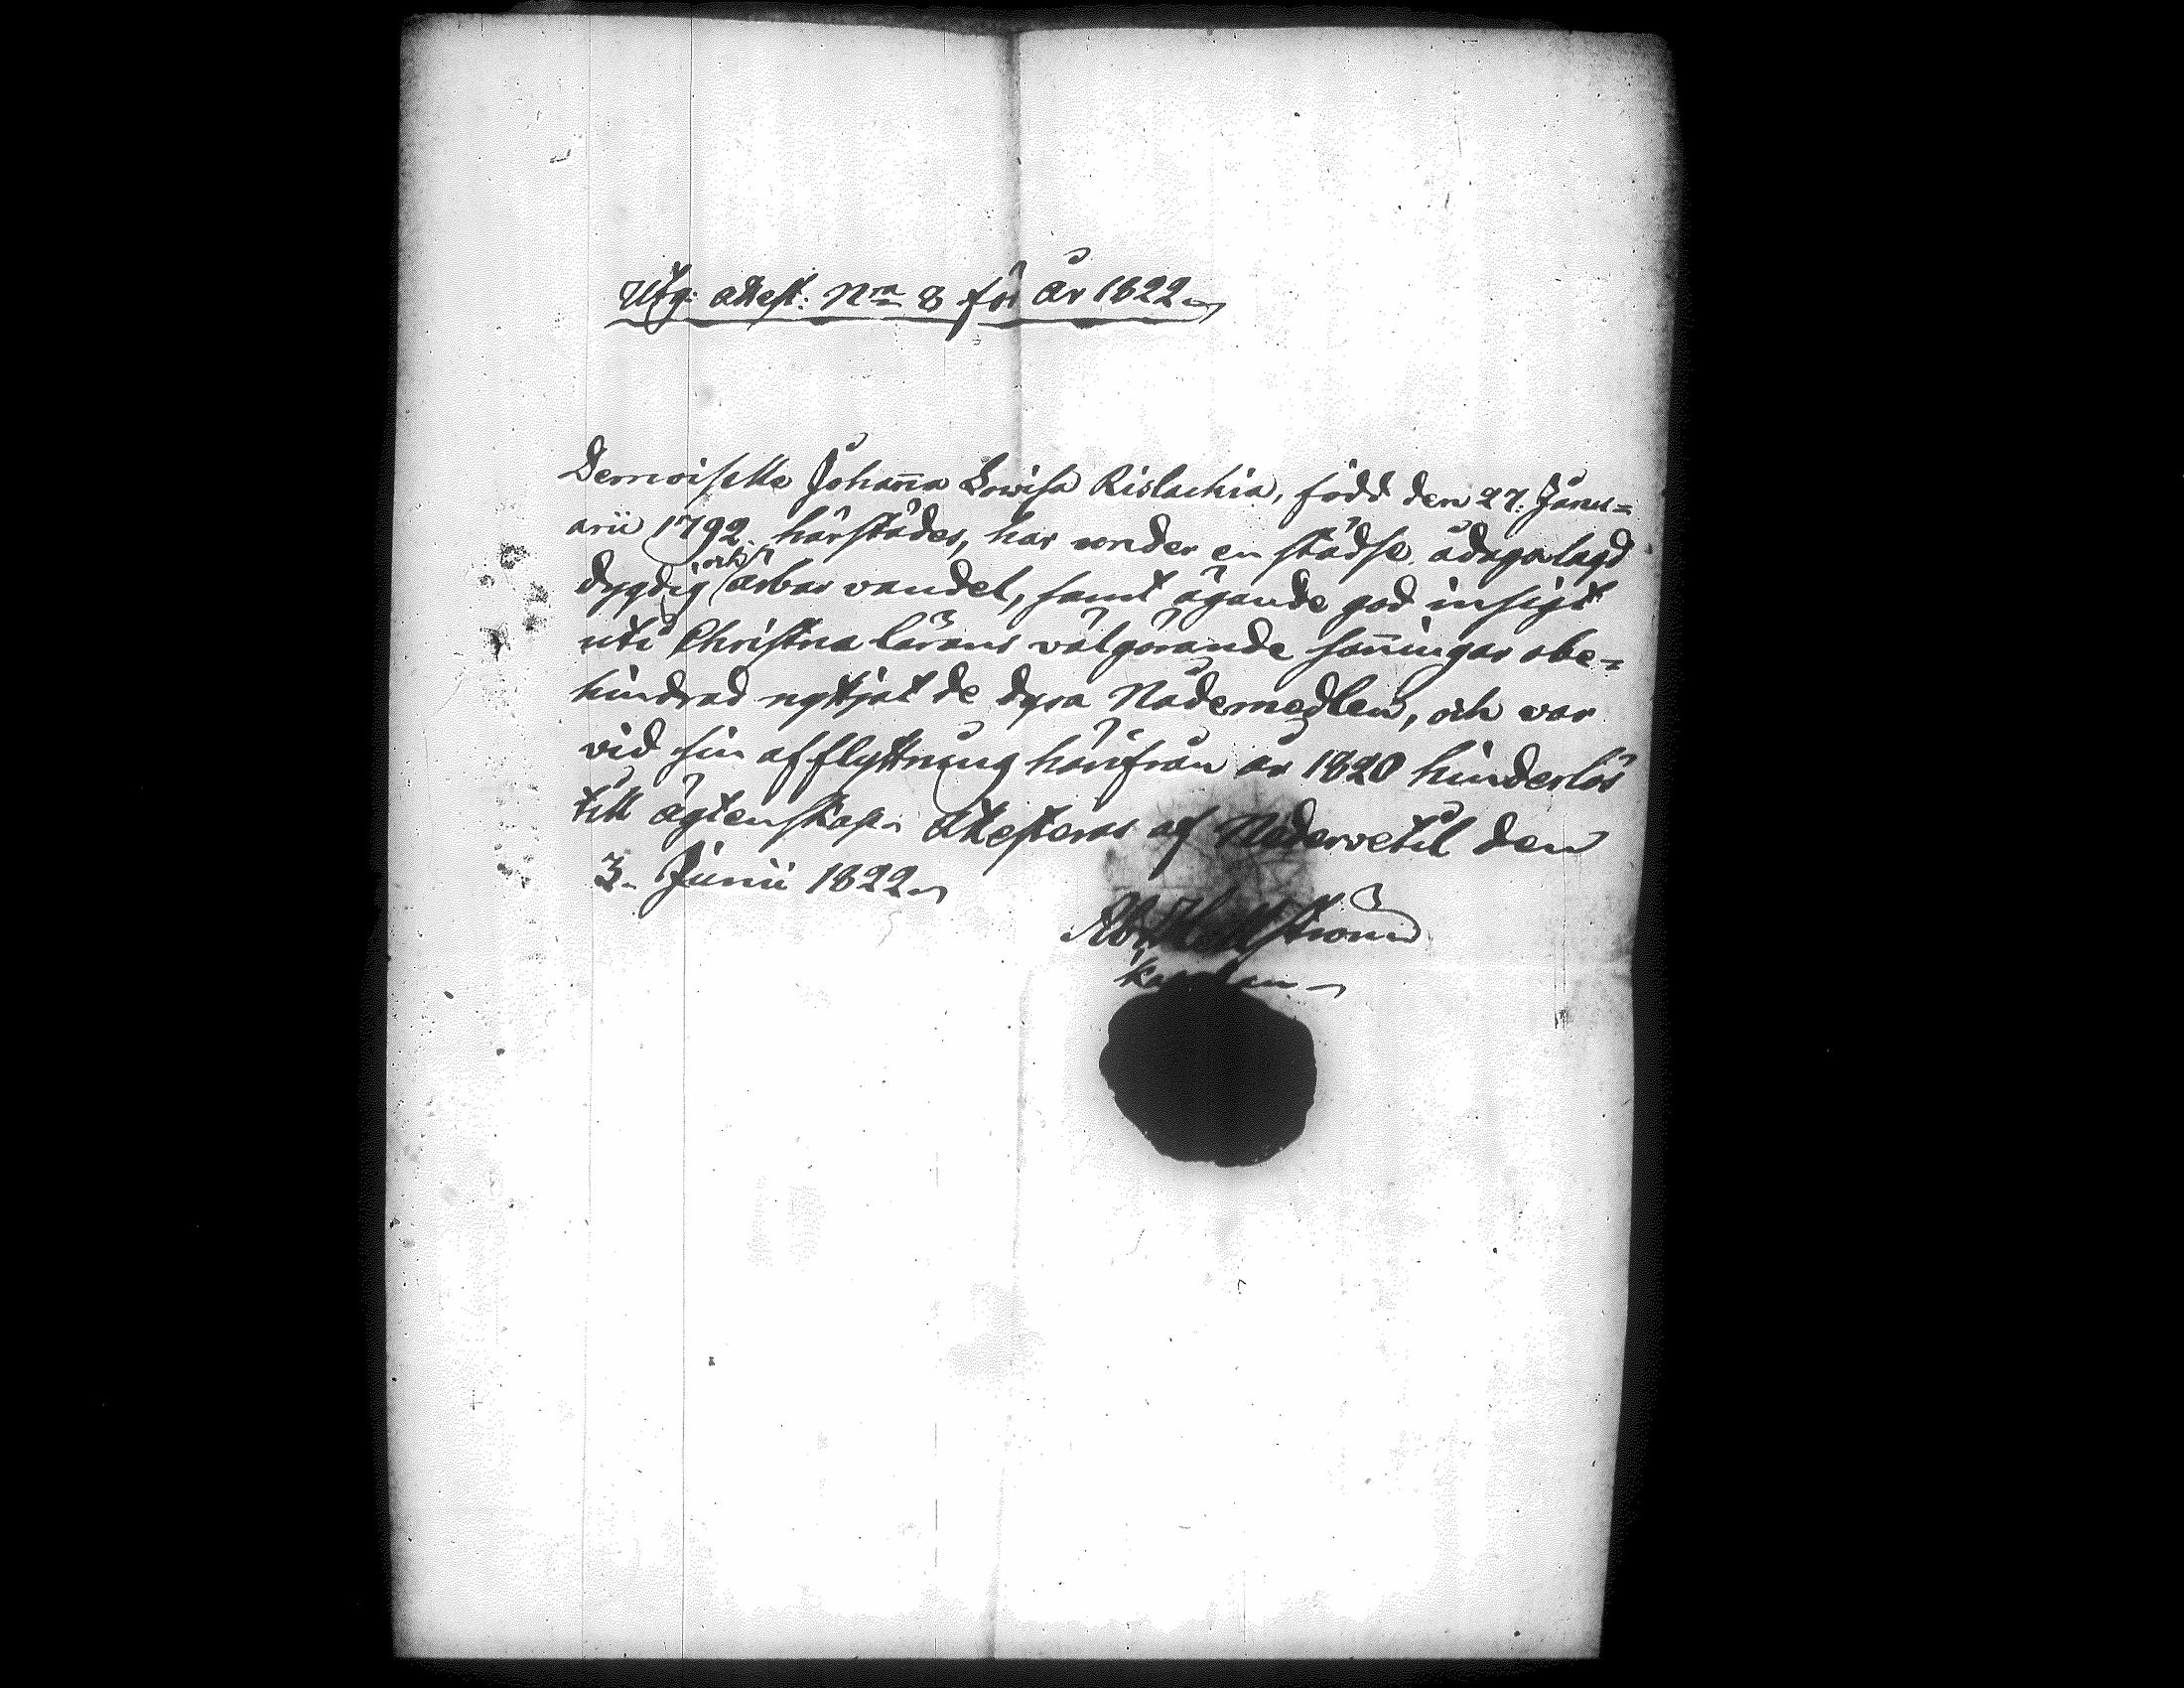 Utg: attest: Nra 8 för år 1822
Demoiselle Johanna Lowisa Rislachia, född den 27. Janu=
arii 1792 härstädes, har under en städse ådagalagd
dygdig och ärbar vandel, samt ägande god insigt
uti Christna lärans välgörande sanningar obe=
hindrad nyttjat de dyra Nådemedlen, och war
vid sin afflyttning härifrån år 1820 hinderlös
till ägtenskap. Attesteras af Nedervetil den
3. Junii 1822